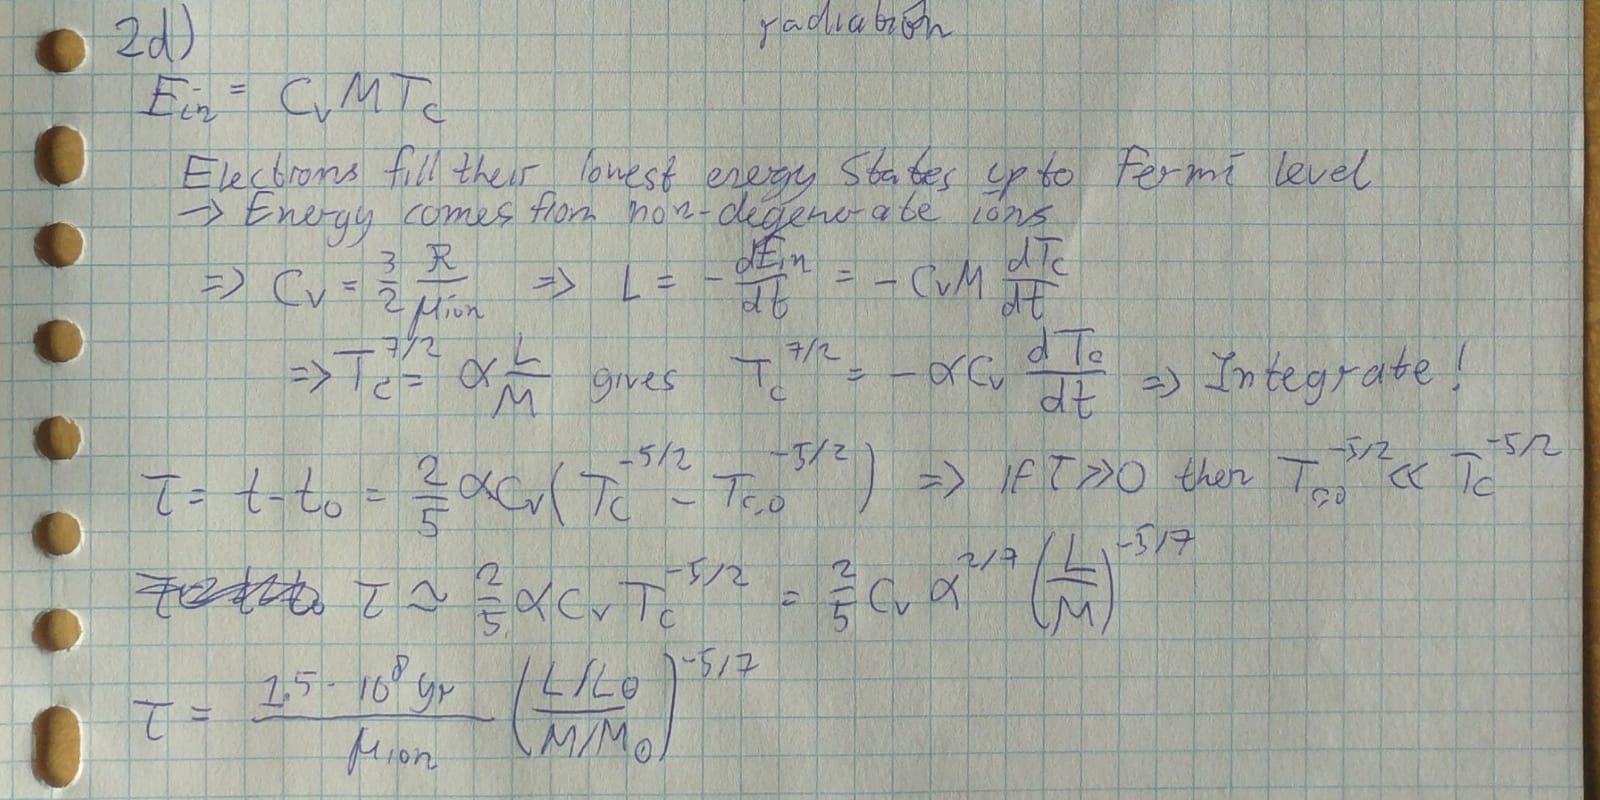 radiation
2d)
E_in = C_v M T_c
Electrons fill their lowest energy states up to Fermi level
→ Energy comes from non-degenerate ions
⇒ C_v = 3/2 R/μ_ion ⇒ L = - dE_in/dt = - C_v M dT_c/dt
⇒ T_c^7/2 = α L/M gives T_c^7/2 = - α C_v dT_c/dt ⇒ Integrate!
τ = t - t_0 = 2/5 α C_v (T_c^-5/2 - T_c,0^-5/2) ⇒ If τ >> 0 then T_c,0^-5/2 << T_c^-5/2
τ ≃ 2/5 α C_v T_c^-5/2 = 2/5 C_v α^2/7 (L/M)^-5/7
τ = 1.5 · 10^8 yr / μ_ion ((L/L_⊙)/(M/M_⊙))^-5/7